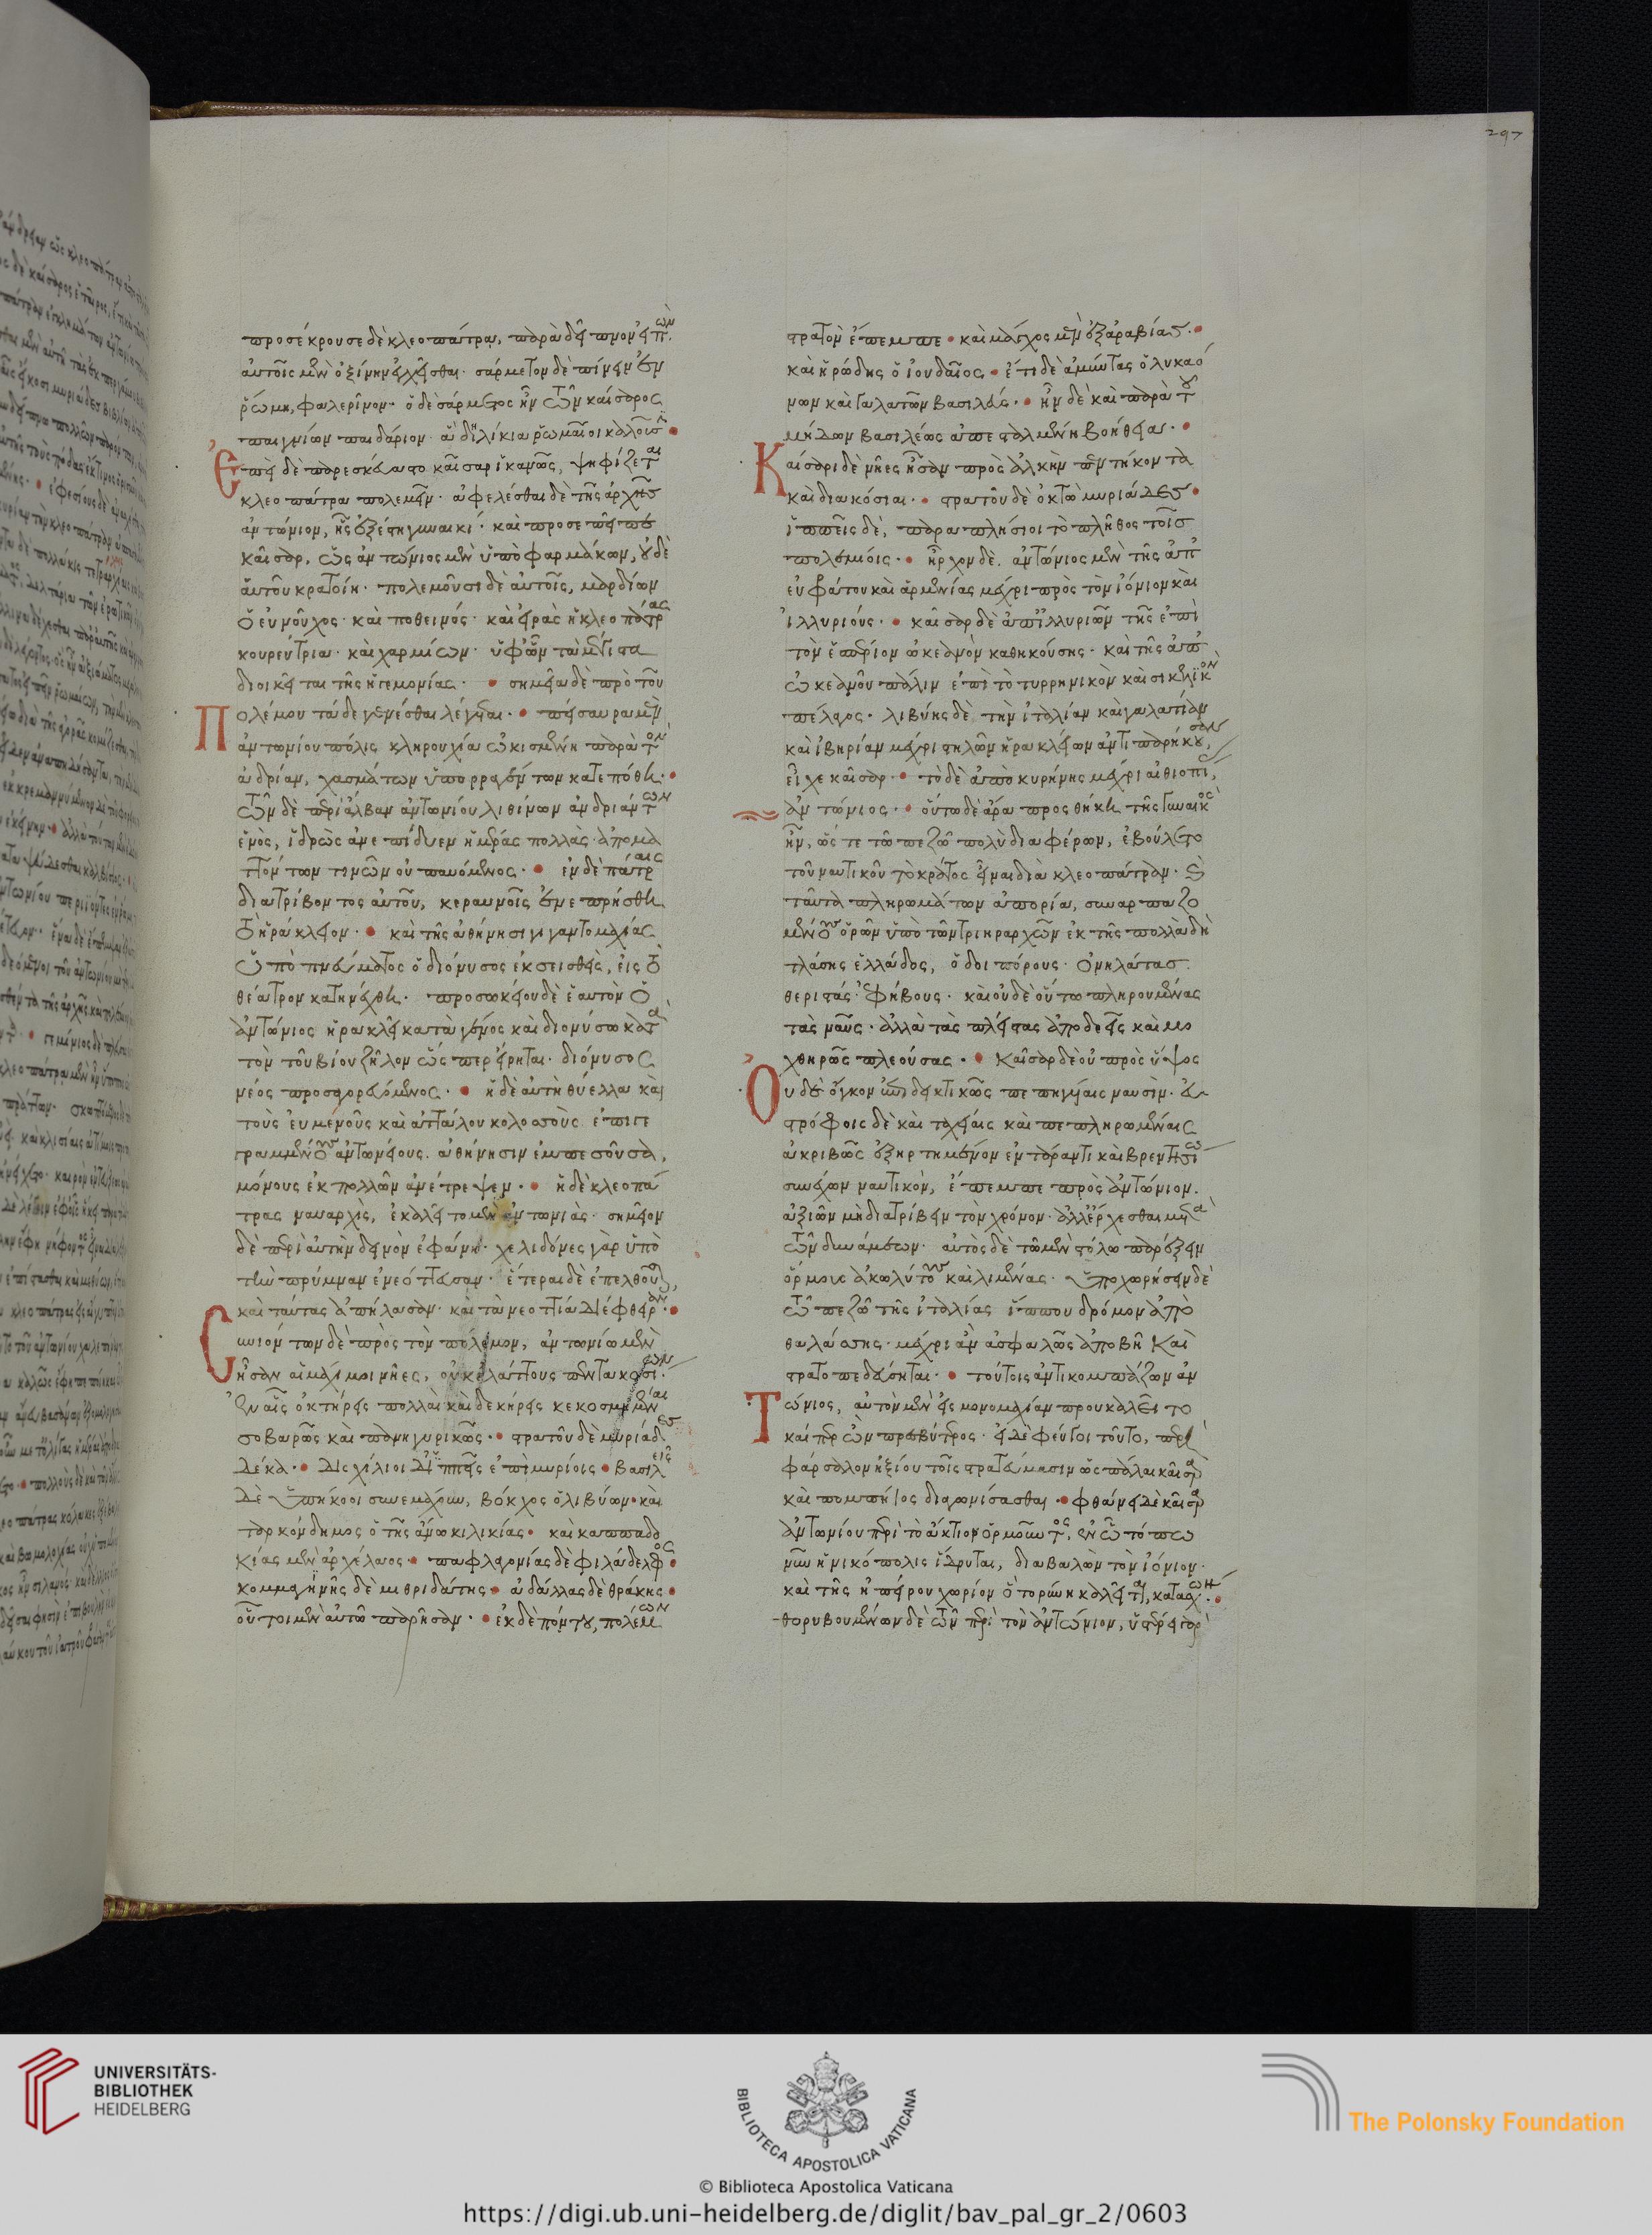 297
προσέκρουσε δὲ κλεοπάτραν, παρὰ δεῖπνον εἰπὼν.
αὐτοῖς μὲν ὀξίνην ἐγχεῖσθαι. σάρμεντον δὲ πίνειν ἐν
ῥώμη, φαλερῖνον. ὁ δὲ σάρμεντος ἦν τῶν καίσαρος
παιγνίων παιδάριον. ἃ δηλίκια ῥωμαῖοι καλοῦσιν
Ἐπεὶ δὲ παρεσκεύαστο καίσαρι ἱκανῶς, ψηφίζεται
κλεοπάτρα πολεμεῖν. ἀφελέσθαι δὲ τῆς ἀρχῆς
ἀντώνιον, ἧς ἐξέστη γυναικί. καὶ προσεπεῖπε
καῖσαρ, ὡς ἀντώνιος μὲν ὑπὸ φαρμάκων, οὐδὲ
αὑτοῦ κρατοίη. πολεμοῦσι δὲ αὐτοῖς, μαρδίων
ὁ εὐνοῦχος. καὶ ποθεινός. καὶ εἰρὰς ἡ κλεοπάτρας
κουρεύτρια. καὶ χαρμίων. ὑφ' ὧν τὰ μέγιστα
διοικεῖται τῆς ἡγεμονίας. σημεῖα δὲ πρὸ τοῦ
Πολέμου τάδε γενέσθαι λέγεται. πείσαυρα μὲν
ἀντωνίου πόλις κληρουχία ὠκισμένη παρὰ τὸν
ἀδρίαν, χασμάτων ὑπορραγέντων κατεπόθη.
τῶν δὲ περὶ ἄλβαν ἀντωνίου λιθίνων ἀνδριάντων
ἑνὸς, ἱδρὼς ἀνεπίδυεν ἡμέρας πολλὰς. ἀπομα
ττόντων τινῶν οὐ παυόμενος. ἐν δὲ πάτραις
διατρίβοντος αὐτοῦ, κεραυνοῖς ἐνεπρήσθη
τὸ ἡράκλειον. καὶ τῆς ἀθήνησι γιγαντομαχίας
ὑπὸ πνεύματος ὁ διόνυσος ἐκσεισθεὶς, εἰς τὸ
θέατρον κατηνέχθη. προσωκείου δὲ ἑαυτὸν ὁ
ἀντώνιος ἡρακλεῖ κατὰ γένος καὶ διονύσω κατὰ
τὸν τοῦ βίου ζῆλον ὥς περ εἴρηται. διόνυσος
νέος προσαγορευόμενος. ἡ δὲ αὐτὴ θύελλα καὶ
τοὺς εὐμένους καὶ ἀττάλου κολοσσοὺς ἐπιγε
γραμμένους ἀντωνείους. ἀθήνησιν ἐμπεσοῦσα,
μόνους ἐκ πολλῶν ἀνέτρεψεν. ἡ δὲ κλεοπά
τρας ναυαρχὶς, ἐκαλεῖτο μὲν ἀντωνιὰς. σημεῖον
δὲ περὶ αὐτὴν δεινὸν ἐφάνη. χελιδόνες γὰρ ὑπὸ
τὴν πρύμναν ἐνεόττευσαν. ἕτεραι δὲ ἐπελθοῦσαι,
καὶ ταύτας ἀπήλασαν. καὶ τὰ νεοττία διέφθειραν.
Συνιόντων δὲ πρὸς τὸν πόλεμον, ἀντωνίω μὲν
ἦσαν αἱ μάχιμοι νῆες, οὐκ ἐλάττους πεντακοσίων.
ἐν αἷς ὀκτήρεις πολλαὶ καὶ δεκήρεις κεκοσμημέναι
σοβαρῶς καὶ πανηγυρικῶς. στρατοῦ δὲ μυριάδες
δέκα. δισχίλιοι δ' ἱππεῖς ἐπὶ μυρίοις. βασιλεῖς
δὲ ὑπήκοοι συνεμάχουν, βόκχος ὁ λιβύων. καὶ
ταρκόνδημος ὁ τῆς ἄνω κιλικίας. καὶ καππαδο
κίας μὲν ἀρχέλαος. παφλαγονίας δὲ φιλάδελφος.
κομμαγηνῆς δὲ μιθριδάτης. ἀδάλλας δὲ θράκης.
οὗτοι μὲν αὐτῶ παρῆσαν. ἐκ δὲ πόντου, πολέμων
στρατὸν ἔπεμπε. καὶ μάλχος μὲν ἐξ ἀραβίας.
καὶ ἡρώδης ὁ ἰουδαῖος. ἔτι δὲ ἀμύντας ὁ λυκαό
νων καὶ γαλατῶν βασιλεύς. ἦν δὲ καὶ παρὰ τοῦ
μήδων βασιλέως ἀπεσταλμένη βοήθεια.
Καίσαρι δὲ νῆες ἦσαν πρὸς ἀλκὴν πεντήκοντα
καὶ διακόσιαι. στρατοῦ δὲ ὀκτὼ μυριάδες.
ἱππεῖς δὲ, παραπλήσιοι τὸ πλῆθος τοῖς
πολεμίοις. ἦρχον δὲ. ἀντώνιος μὲν τῆς ἀπ'
εὐφράτου καὶ ἀρμενίας μέχρι πρὸς τὸν ἰόνιον καὶ
ἰλλυριούς. καῖσαρ δὲ ἀπ' ἰλλυριῶν τῆς ἐπὶ
τὸν ἑσπέριον ὠκεανὸν καθηκούσης. καὶ τῆς ἀπ'
ὠκεανοῦ πάλιν ἐπὶ τὸ τυρρηνικὸν καὶ σικελικὸν
πέλαγος. λιβύης δὲ τὴν ἰταλίαν καὶ γαλατίαν
καὶ ἰβηρίαν μέχρι στηλῶν ἡρακλείων ἀντιπαρήκουσαν,
εἶχε καῖσαρ. τὸ δὲ ἀπὸ κυρήνης μέχρι αἰθιοπί,
ἀντώνιος. οὕτω δὲ ἄρα προσθήκη τῆς γυναικὸς
ἦν, ὥς τε τῶ πεζῶ πολὺ διαφέρων, ἐβούλετο
τοῦ ναυτικοῦ τὸ κράτος εἶναι διὰ κλεοπάτραν. καὶ
ταῦτα πληρωμάτων ἀπορία, συναρπαζο
μένους ὁρῶν ὑπὸ τῶν τριηραρχῶν ἐκ τῆς πολλὰ δὴ
τλάσης ἑλλάδος, ὁδοιπόρους. ὀνηλάτας.
θεριστάς. ἐφήβους. καὶ οὐδὲ οὕτω πληρουμένας
τὰς ναῦς. ἀλλὰ τὰς πλείστας ἀποδεεῖς καὶ μο
χθηρῶς πλεούσας. Καῖσαρ δὲ οὐ πρὸς ὕψος
Οὐδὲ ὄγκον ἐπιδεικτικῶς πεπηγυίαις ναυσὶν. εὐ
στρόφοις δὲ καὶ ταχείαις καὶ πεπληρωμέναις
ἀκριβῶς ἐξηρτημένον ἐν τάραντι καὶ βρεντεσίω
συνέχων ναυτικὸν, ἔπεμπε πρὸς ἀντώνιον.
ἀξιῶν μὴ διατρίβειν τὸν χρόνον. ἀλλ' ἔρχεσθαι μετὰ
τῶν δυνάμεων. αὐτὸς δὲ τῶ μὲν στόλω παρέξειν
ὅρμους ἀκωλύτους καὶ λιμένας. ὑποχωρήσειν δὲ
τῶ πεζῶ τῆς ἰταλίας ἵππου δρόμον ἀπὸ
θαλάσσης. μέχρι ἂν ἀσφαλῶς ἀποβῆ καὶ
στρατοπεδεύσηται. τούτοις ἀντικομπάζων ἀν
Τώνιος, αὐτὸν μὲν εἰς μονομαχίαν προυκαλεῖτο
καίπερ ὢν πρεσβύτερος. εἰ δὲ φεύγοι τοῦτο, περὶ
φάρσαλον ἠξίου τοῖς στρατεύμασιν ὡς πάλαι καῖσαρ
καὶ πομπήϊος διαγωνίσασθαι. φθάνει δὲ καῖσαρ
ἀντωνίου περὶ τὸ ἄκτιον ὁρμοῦντος, ἐν ὧ τόπω
νῦν ἡ νικόπολις ἵδρυται, διαβαλὼν τὸν ἰόνιον.
καὶ τῆς ἠπείρου χωρίον ὃ τορύνη καλεῖται, κατασχών.
θορυβουμένων δὲ τῶν περὶ τὸν ἀντώνιον, ὑστέρει γὰρ
UNIVERSITÄTS-
BIBLIOTHEK
HEIDELBERG
BIBLIOTECA APOSTOLICA VATICANA
The Polonsky Foundation
© Biblioteca Apostolica Vaticana
https://digi.ub.uni-heidelberg.de/diglit/bav_pal_gr_2/0603